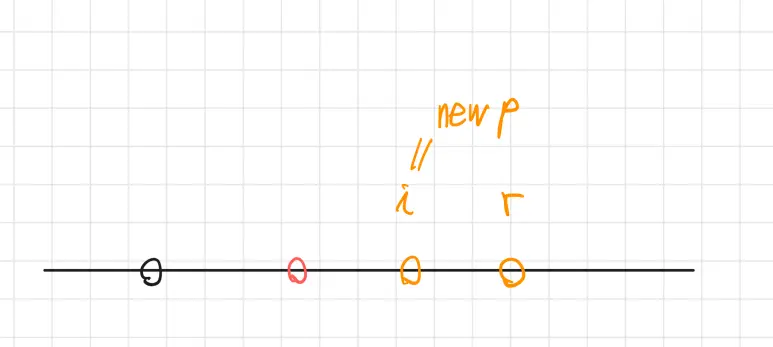 new p
//
i r